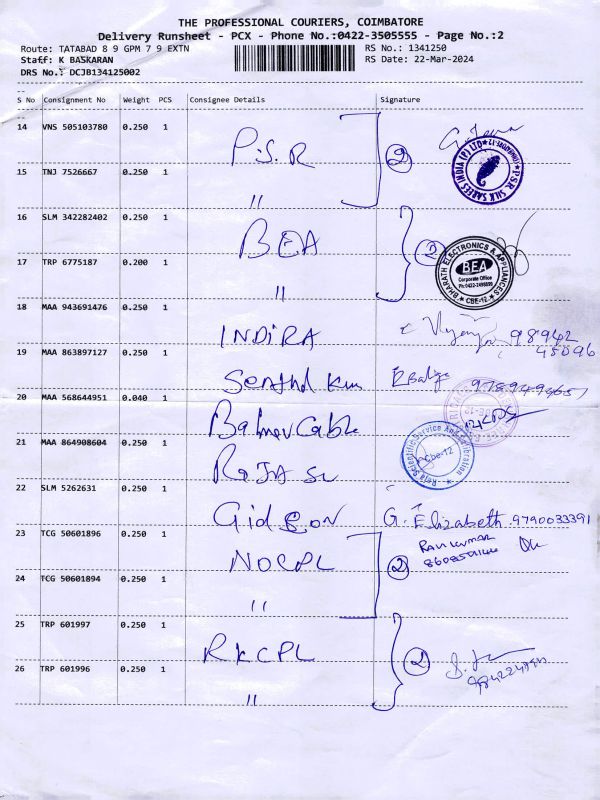 THE PROFESSIONAL COURIERS, COIMBATORE
Delivery Runsheet - PCX - Phone No.:0422-3505555 - Page No.:2
Route: TATABAD 8 9 GPM 7 9 EXTN RS No.: 1341250
Staff: K BASKARAN RS Date: 22-Mar-2024
DRS No.: DCJB134125002
S No Consignment No Weight PCS Consignee Details Signature
14 VNS 505103780 0.250 1 P.S.R 2
PSR SILK SAREES INDIA (P) LTD
15 TNJ 7526667 0.250 1 "
16 SLM 342282402 0.250 1 BEA 2
BHARATH ELECTRONICS & APPLIANCES
BEA
Corporate Office
CBE-12
17 TRP 6775187 0.200 1 "
18 MAA 943691476 0.250 1 INDIRA 98942
45096
19 MAA 863897127 0.250 1 Senthil Kum
20 MAA 568644951 0.040 1 Cable
21 MAA 864908604 0.250 1
Scientific Service And Calibration
Cbe-12
22 SLM 5262631 0.250 1 Gideon G. Elizabeth 9790033391
23 TCG 50601896 0.250 1 NOCPL 2 Ravikumar
24 TCG 50601894 0.250 1 "
25 TRP 601997 0.250 1 RKCPL 2
26 TRP 601996 0.250 1 "